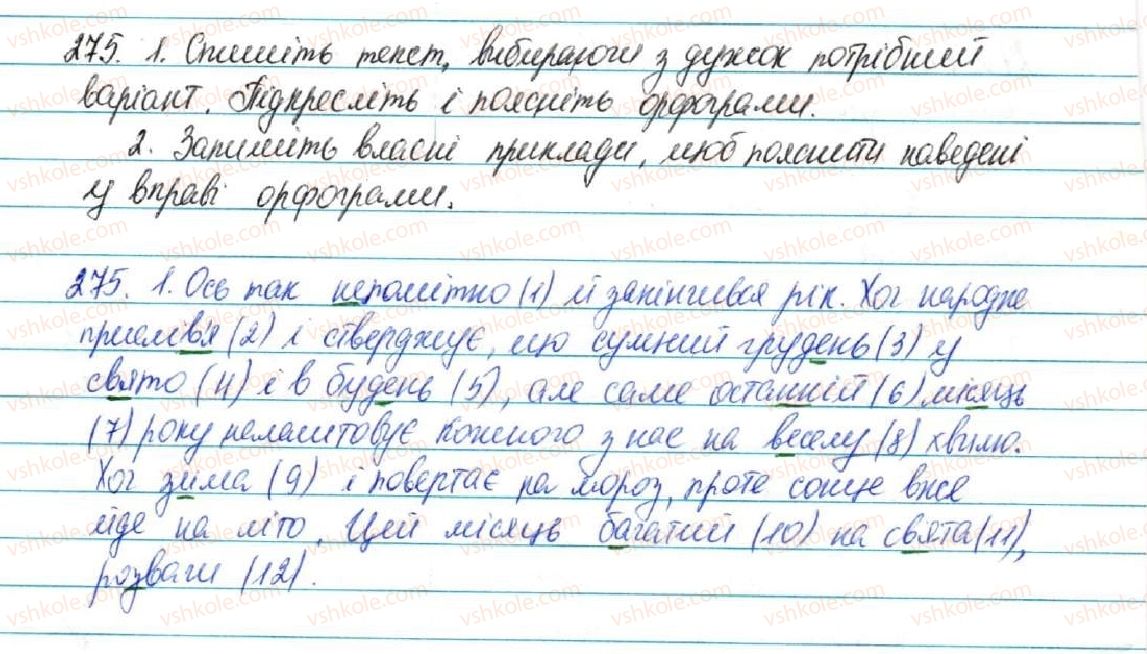 275. 1. Спишіть текст, вибираючи з дужок потрібний
варіант. Підкресліть і поясніть орфограми.
2. Запишіть власні приклади, щоб пояснити наведені
у вправі орфограми.
275. 1. Ось так непомітно (1) й закінчився рік. Хоч народне
прислів'я (2) і стверджує, що сумний грудень (3) у
свято (4) і в будень (5), але саме останній (6) місяць
(7) року налаштовує кожного з нас на веселу (8) хвилю.
Хоч зима (9) і повертає на мороз, проте сонце вже
йде на літо. Цей місяць багатий (10) на свята (11),
розваги (12).